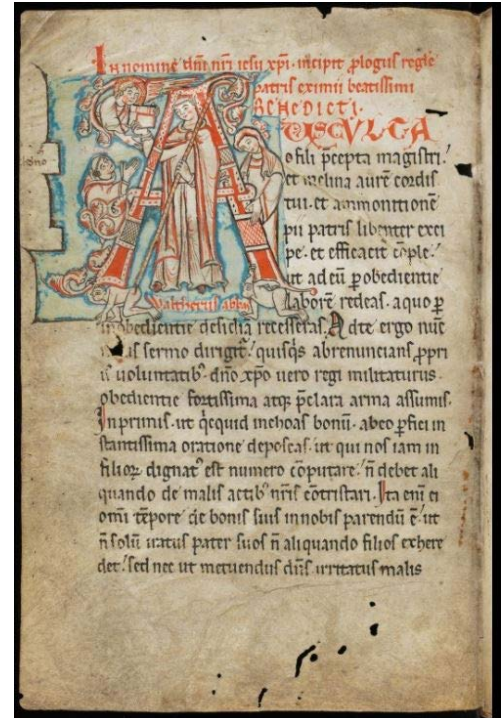 In nomine dnī nrī iesu xpī. incipit plogus regle
patris eximii beatissimi
BENEDICTI.
AUSCULTA
o fili p̄cepta magistri.
et inclina aurē cordis
tui. et ammonitionē
pii patris libenter exci
pe. et efficacit cōple.
ut ad eū p obedientie
laborē redeas. a quo p
inobedientie desidia recesseras. Ad te ergo nūc
sermo dirigit. quisq̇s abrenuncians ppri
is uoluntatib; dn̄o xpō uero regi militaturus.
obedientie fortissima atq; p̄clara arma assumis.
In primis. ut q̇cquid inchoas bonū. ab eo pfici in
stantissima oratione deposcas. ut qui nos iam in
filioꝝ dignat est numero cōputare. n̄ debet ali
quando de malis actib; nrīs cōtristari. Ita enī ei
omī tēpore de bonis suis in nobis parendū ē. ut
n̄ solū iratus pater suos n̄ aliquando filios exhere
det. sed nec ut metuendus dn̄s irritatus malis
Waltherus abbas